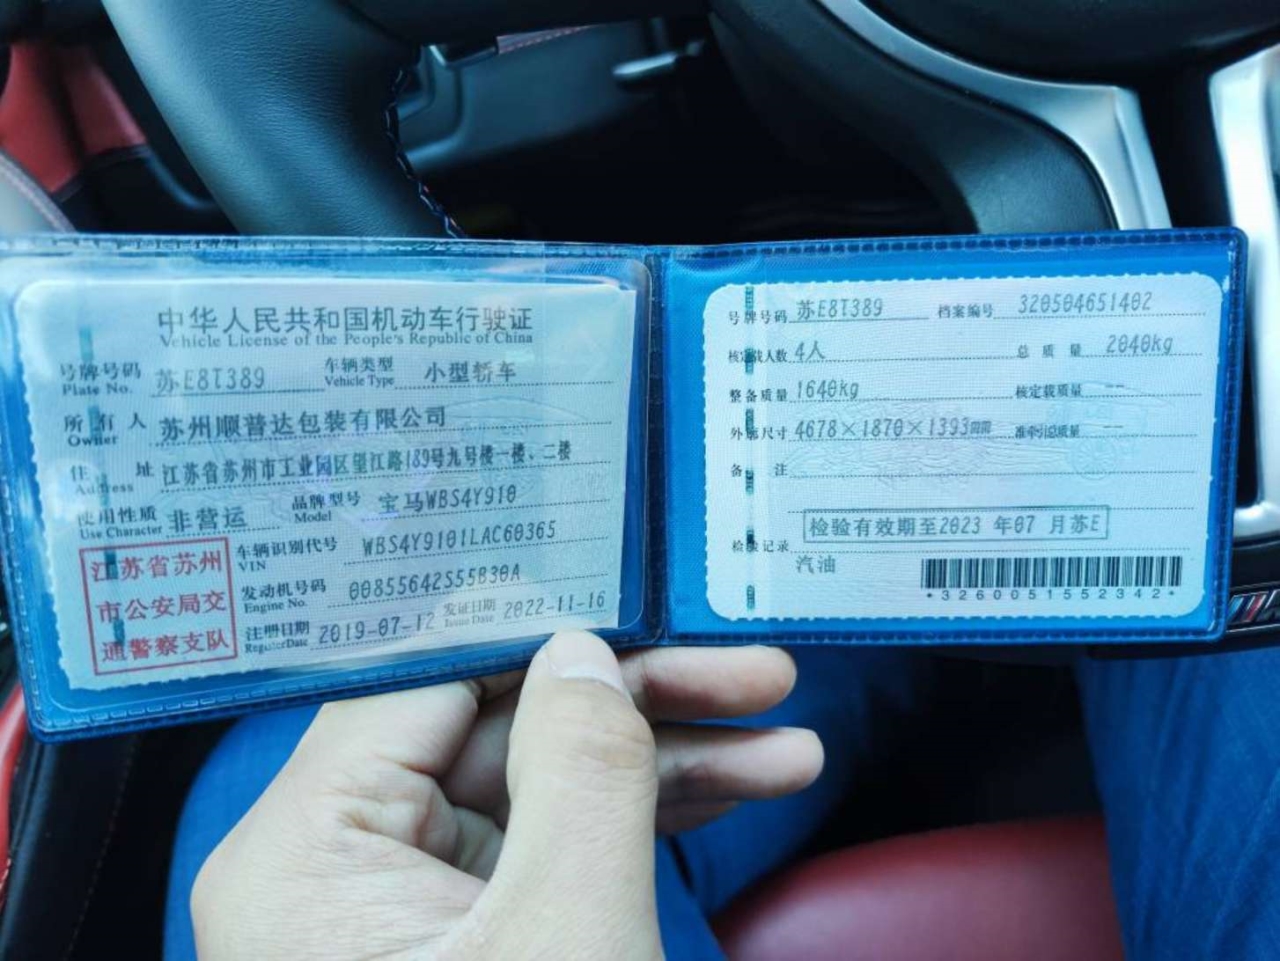 中华人民共和国机动车行驶证
Vehicle License of the People's Republic of China
号牌号码 Plate No. 苏E8T389 车辆类型 Vehicle Type 小型轿车
所有人 Owner 苏州顺普达包装有限公司
住址 Address 江苏省苏州市工业园区望江路189号九号楼一楼、二楼
使用性质 Use Character 非营运 品牌型号 Model 宝马WBS4Y910
车辆识别代号 VIN WBS4Y9101LAC60365
发动机号码 Engine No. 00855642S55B30A
注册日期 Register Date 2019-07-12 发证日期 Issue Date 2022-11-16
江苏省苏州
市公安局交
通警察支队
号牌号码 苏E8T389 档案编号 320504651402
核定载人数 4人 总质量 2040kg
整备质量 1640kg 核定载质量 --
外廓尺寸 4678×1870×1393mm 准牵引总质量 --
备注
检验有效期至2023 年07 月苏E
检验记录
汽油
*3260051552342*